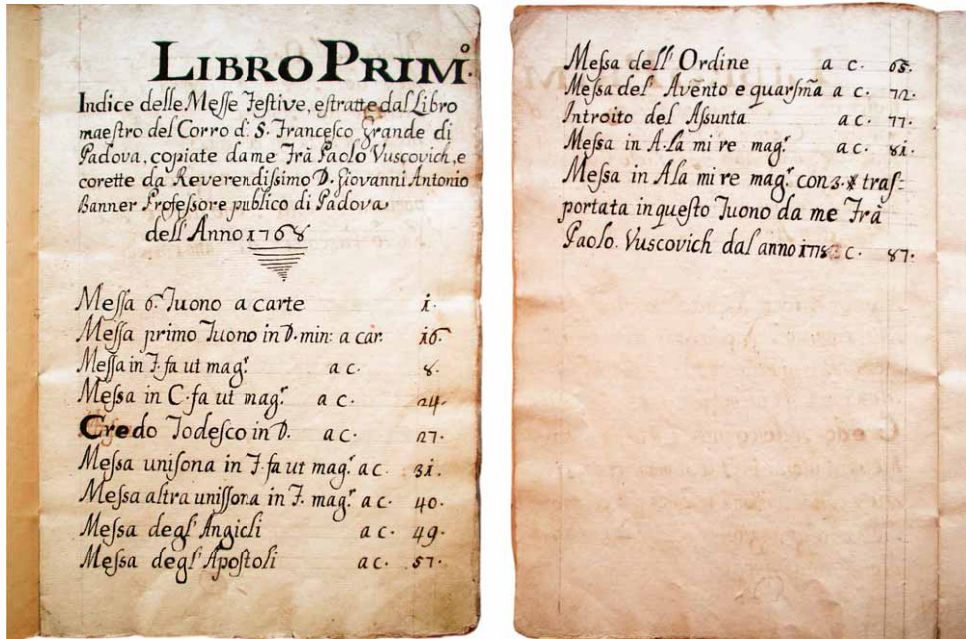 LIBRO PRIMº.
Indice delle Messe Festive, estratte dal Libro
maestro del Corro di S. Francesco Grande di
Padova, copiate da me Frà Paolo Vuscovich, e
corette da Reverendissimo D. Giovanni Antonio
Banner Professore publico di Padova
dell'Anno 1768
Messa 6º Tuono a carte 1.
Messa primo Tuono in D. min: a car. 16.
Messa in F. fa ut mag.r a c. 8.
Messa in C. fa ut mag.r a c. 24.
Credo Todesco in D. a c. 27.
Messa unisona in F. fa ut mag.r a c. 31.
Messa altra unissona in F. mag.r a c. 40.
Messa degl' Angieli a c. 49.
Messa degl' Apostoli a c. 57.
Messa dell' Ordine a c. 65.
Messa del' Avento e quarsma a c. 72.
Introito del Assunta a c. 77.
Messa in A. la mi re mag.r a c. 81.
Messa in A la mi re mag.r con 3. # tras-
portata in questo Tuono da me Frà
Paolo Vuscovich dal anno 1778: c. 87.